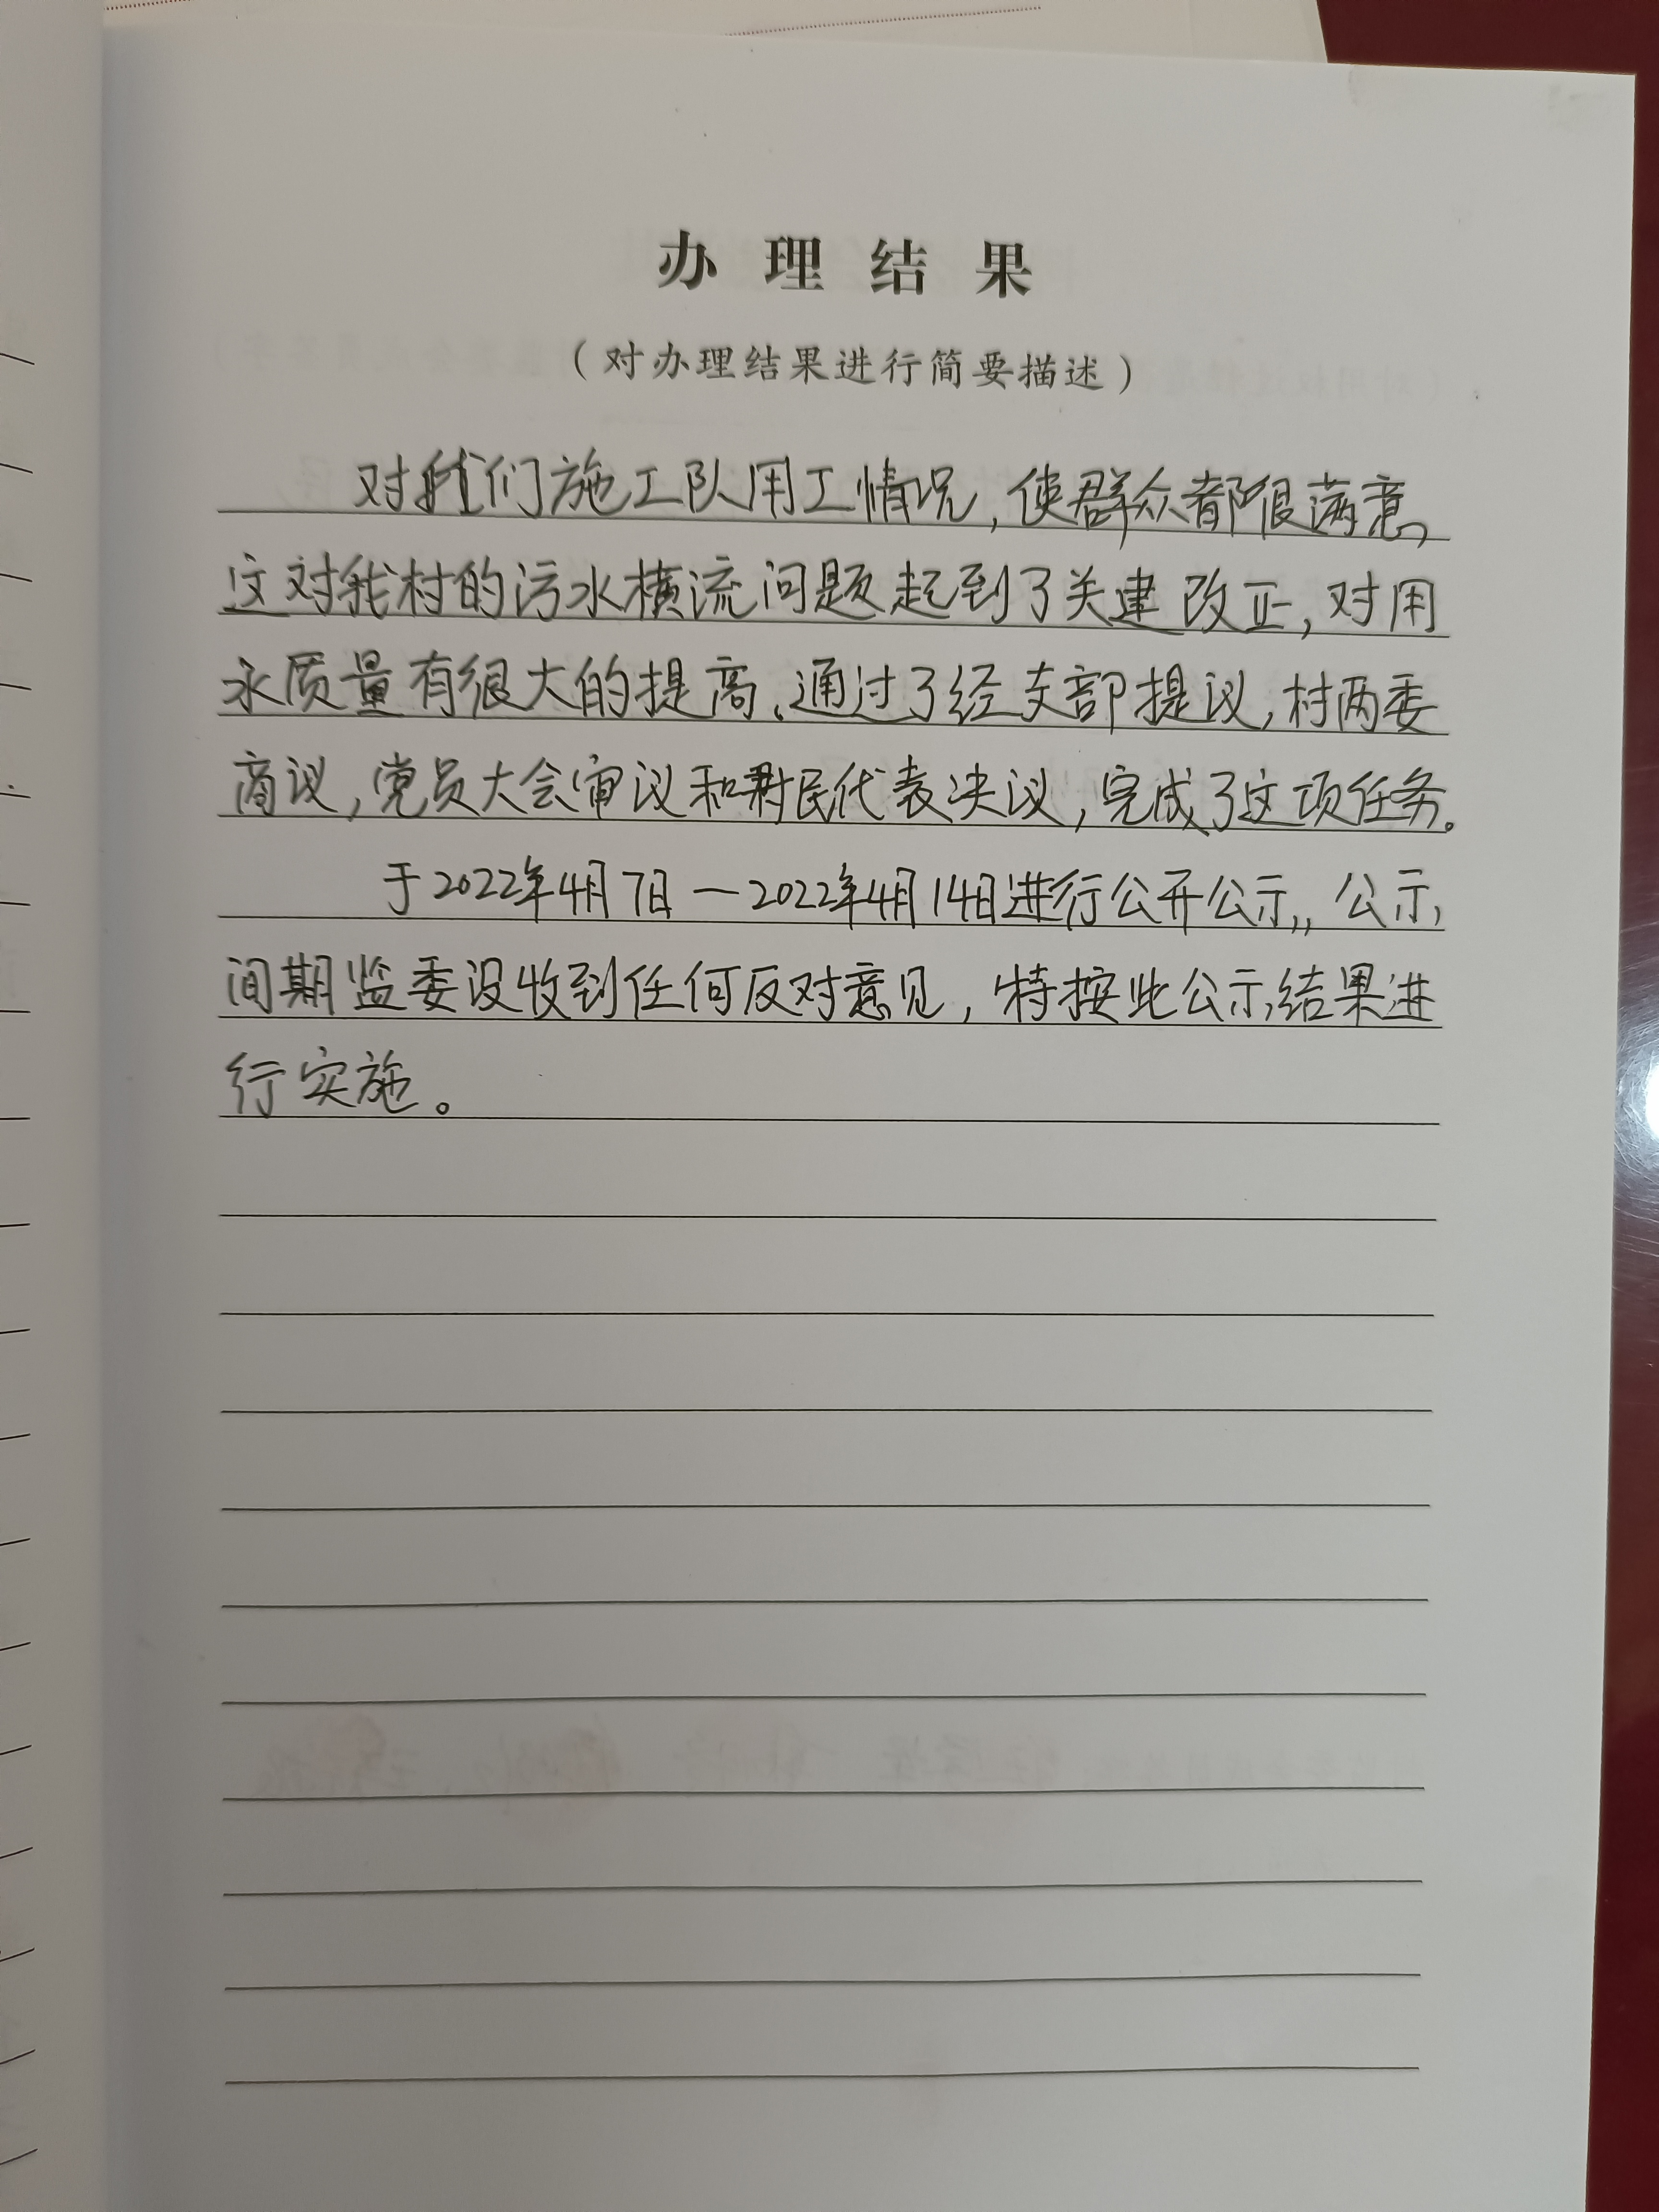 办理结果
（对办理结果进行简要描述）
对我们施工队用工情况，使群众都很满意，
这对我村的污水横流问题起到了关建改正，对用
水质量有很大的提高、通过了经支部提议，村两委
商议，党员大会审议和村民代表决议，完成了这项任务。
于2022年4月7日—2022年4月14日进行公开公示，，公示，
间期监委没收到任何反对意见，特按此公示结果进
行实施。